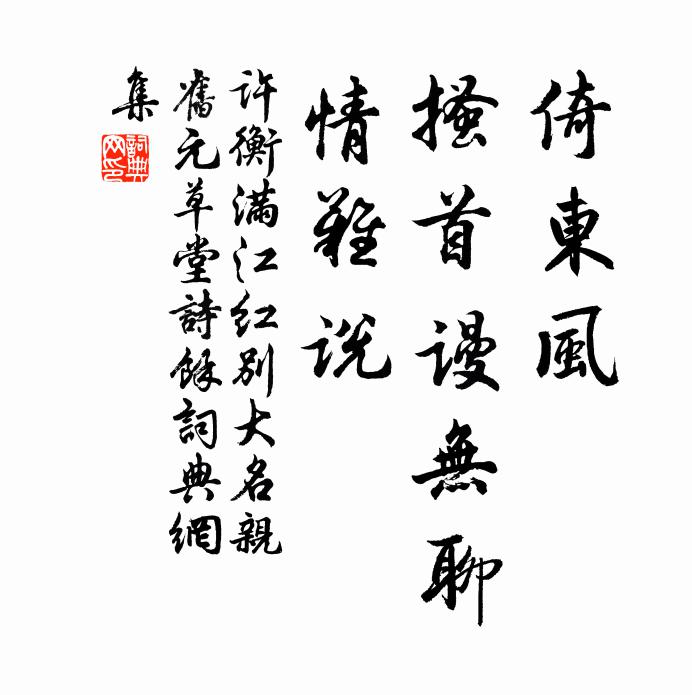 倚東風
搔首謾無聊
情難說
許衡滿江紅別大名親
舊元草堂詩餘詞典網
集
詞典
网印